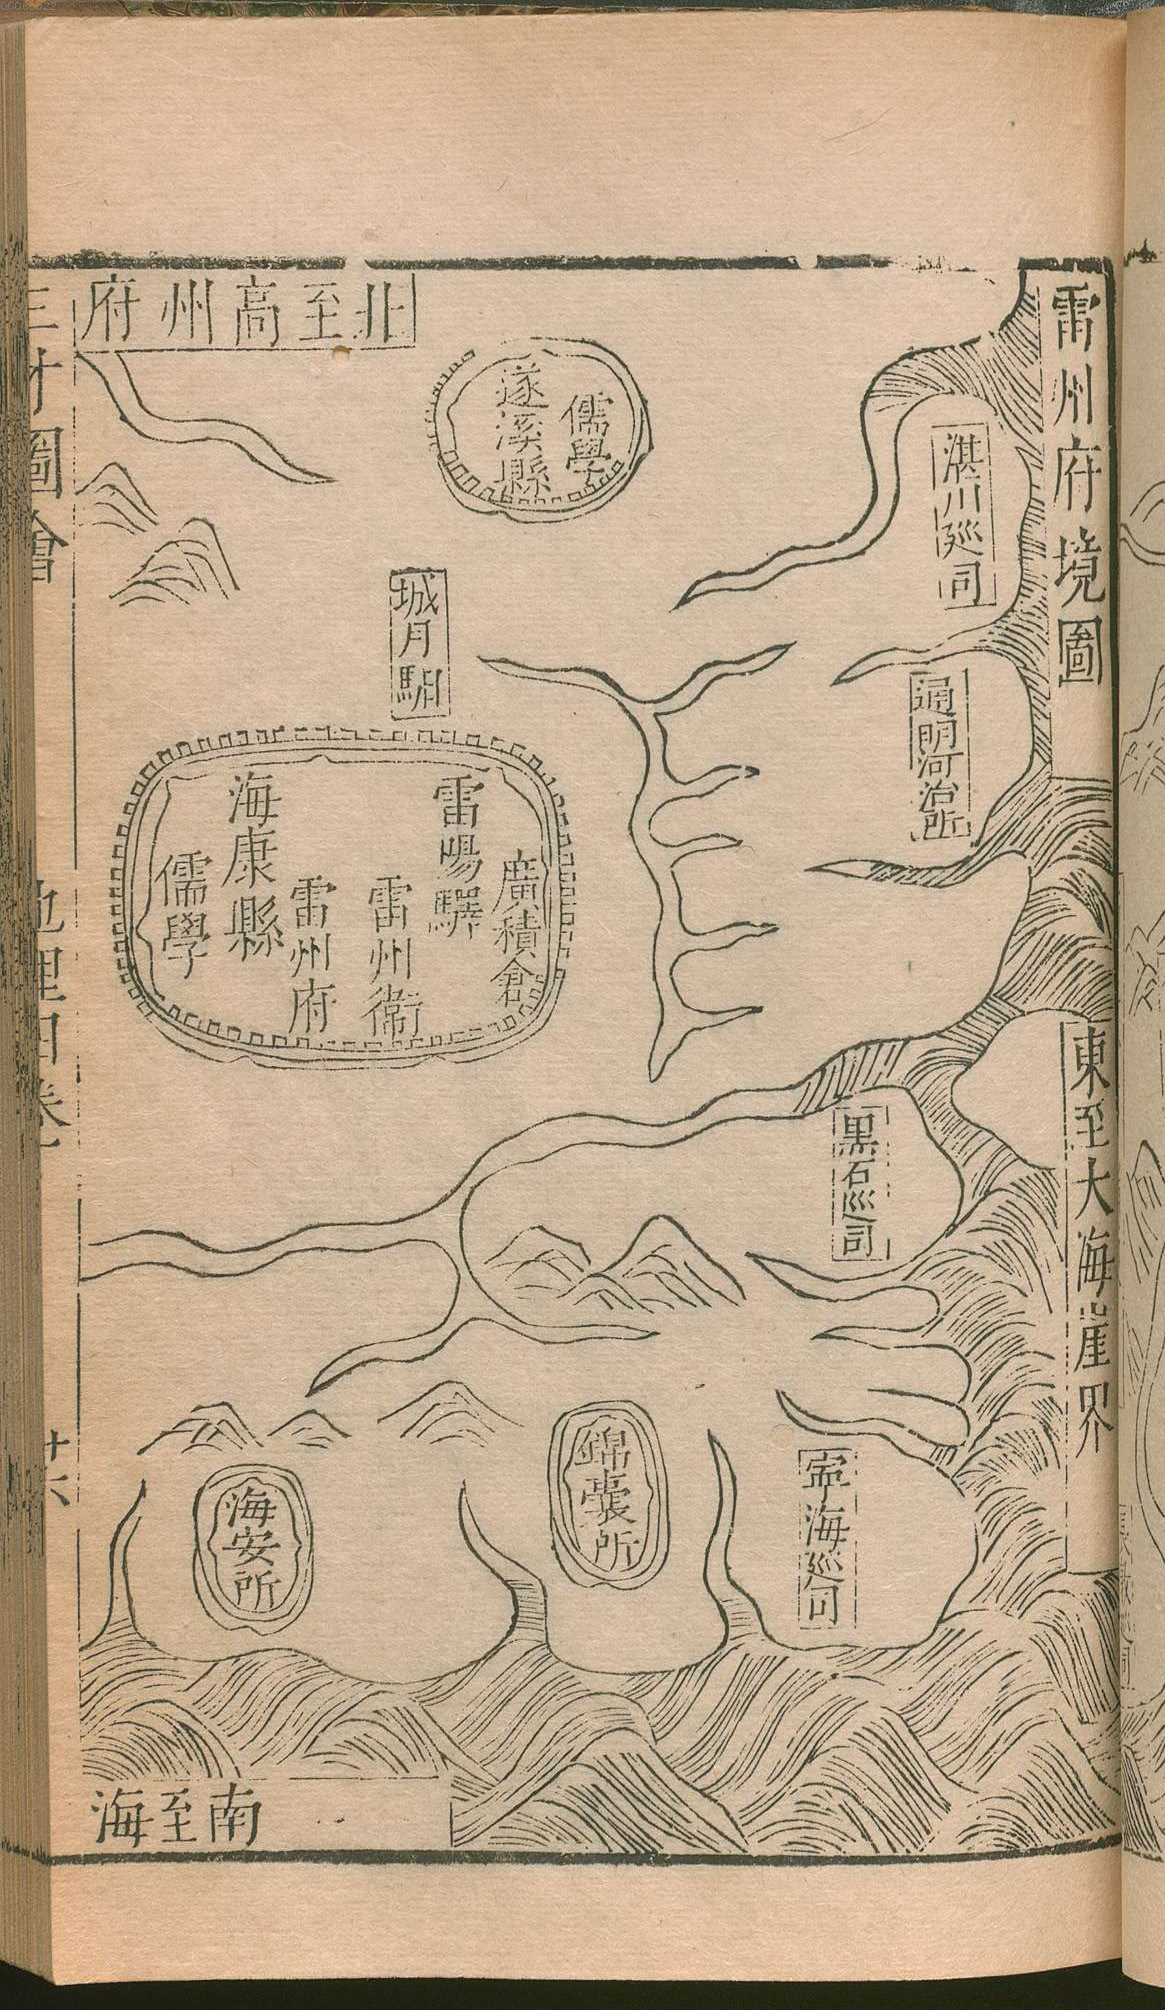 雷州府境圖
東至大海崖界
湛川廵司
通明河泊所
黒石廵司
寕海廵司
儒學
遂溪縣
北至高州府
城月馹
廣積倉
雷陽驛
雷州衞
雷州府
海康縣
儒學
錦囊所
海安所
南至海
三才圖會
地理四卷
廿六